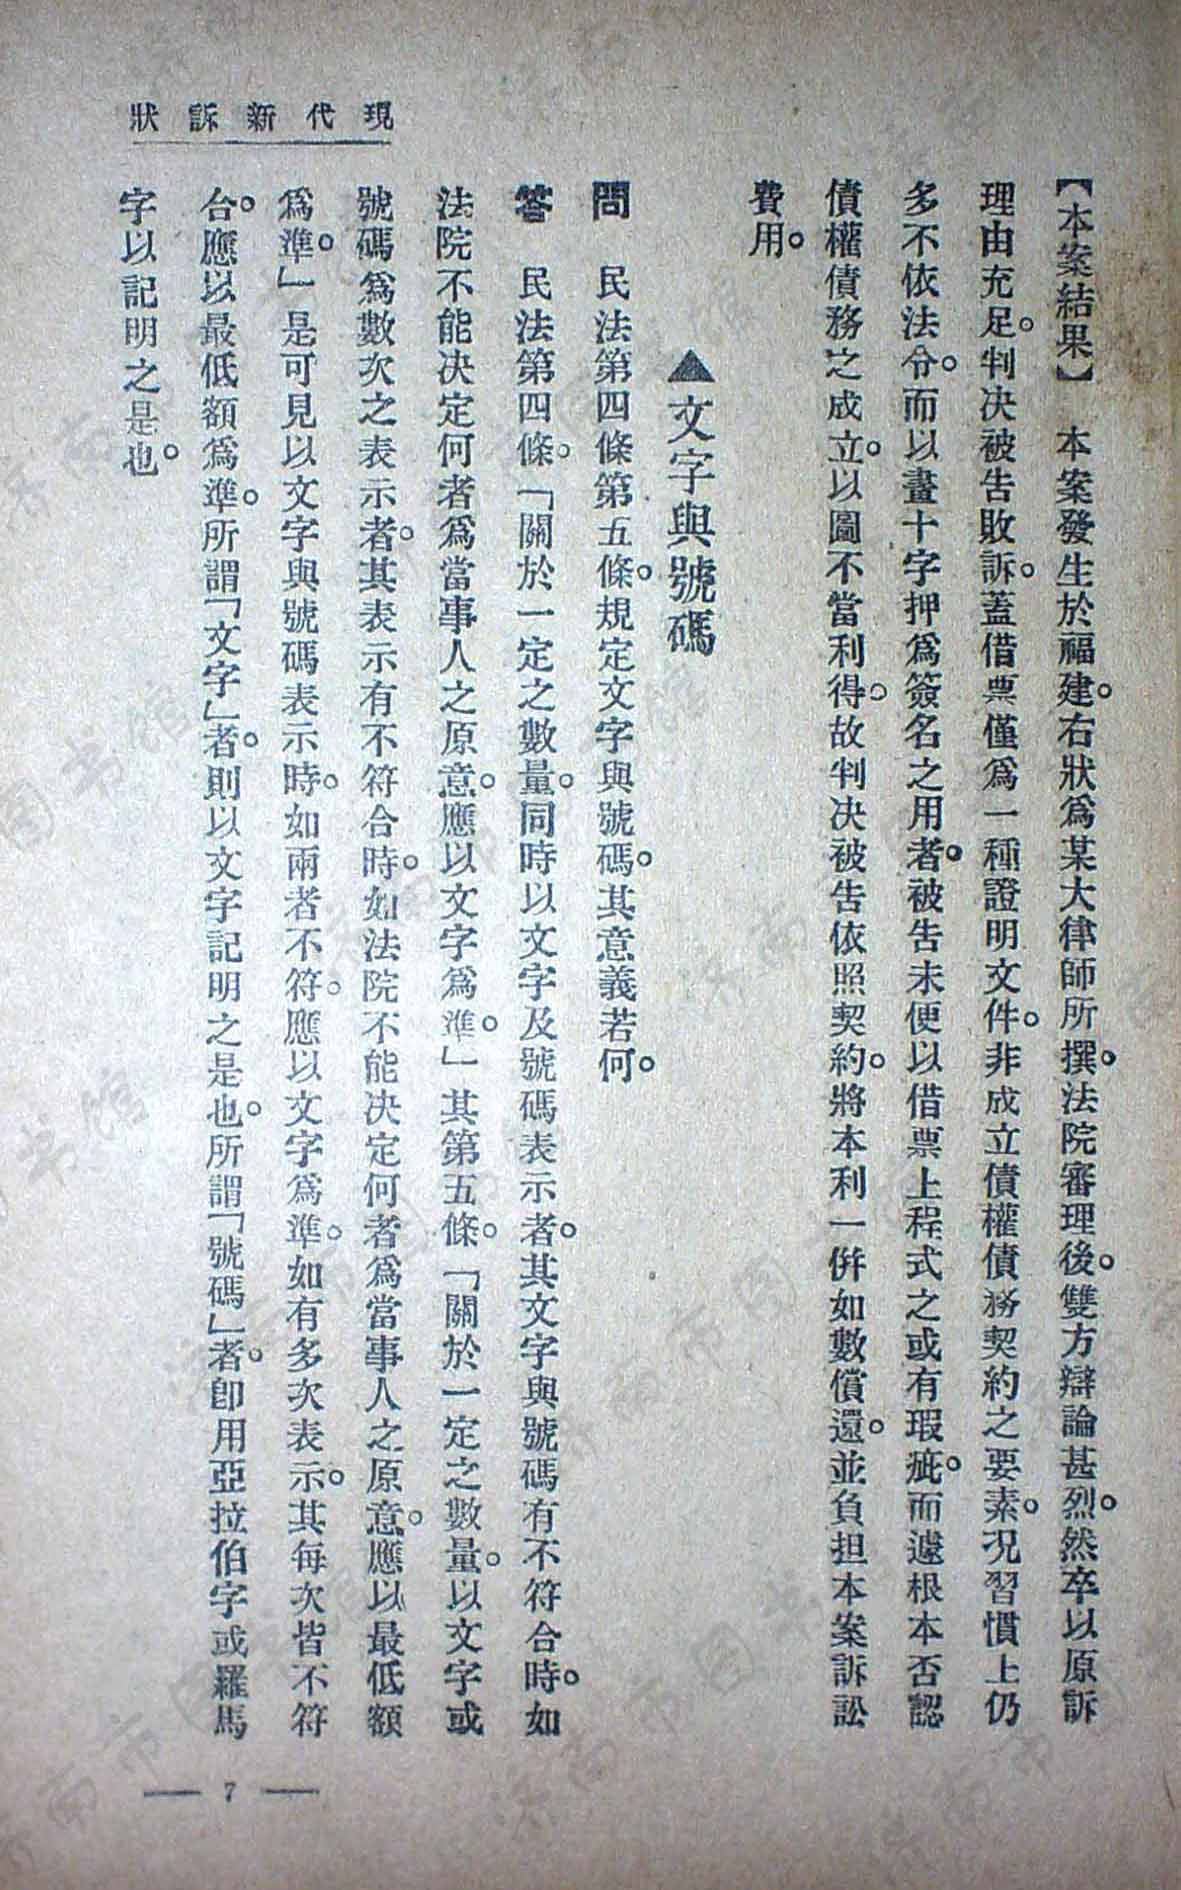 現代新訴狀
【本案結果】　本案發生於福建。右狀爲某大律師所撰。法院審理後。雙方辯論甚烈。然卒以原訴
理由充足。判决被告敗訴。蓋借票僅爲一種證明文件。非成立債權債務契約之要素。况習慣上仍
多不依法令。而以畫十字押爲簽名之用者。被告未便以借票上程式之或有瑕疵。而遽根本否認
債權債務之成立。以圖不當利得。故判决被告依照契約。將本利一併如數償還。並負担本案訴訟
費用。
▲文字與號碼
問　民法第四條第五條。規定文字與號碼。其意義若何。
答　民法第四條。「關於一定之數量。同時以文字及號碼表示者。其文字與號碼有不符合時。如
法院不能决定何者爲當事人之原意。應以文字爲準。」其第五條。「關於一定之數量。以文字或
號碼爲數次之表示者。其表示有不符合時。如法院不能决定何者爲當事人之原意。應以最低額
爲準。」是可見以文字與號碼表示時。如兩者不符。應以文字爲準。如有多次表示。其每次皆不符
合。應以最低額爲準。所謂「文字」者。則以文字記明之是也。所謂「號碼」者。卽用亞拉伯字或羅馬
字以記明之是也。
— 7 —
济南市图书馆